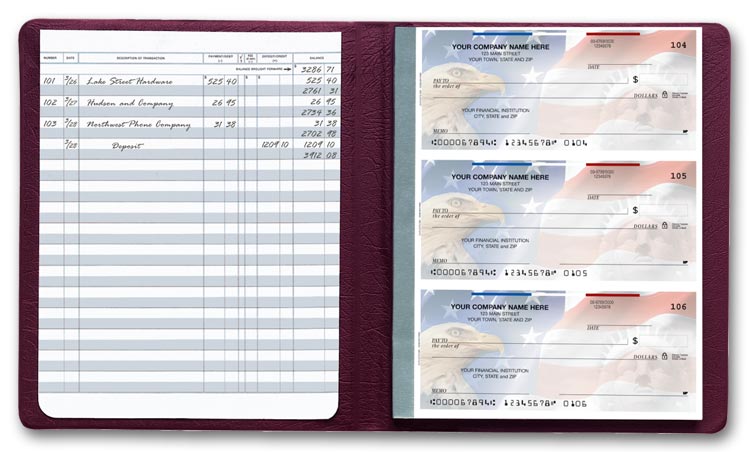 NUMBER DATE DESCRIPTION OF TRANSACTION PAYMENT/DEBIT (-) FEE (IF ANY) (-) DEPOSIT/CREDIT (+) BALANCE
BALANCE BROUGHT FORWARD $ 3286 71
101 5/26 Lake Street Hardware $ 525 40 $ $ 525 40
2761 31
102 5/27 Hudson and Company 26 95 26 95
2734 36
103 5/28 Northwest Phone Company 31 38 31 38
2702 98
5/28 Deposit 1209 10 1209 10
3912 08
YOUR COMPANY NAME HERE 104
123 MAIN STREET
YOUR TOWN, STATE AND ZIP
DATE
PAY TO
the order of $
DOLLARS
YOUR FINANCIAL INSTITUTION
CITY, STATE and ZIP
MEMO
⑆000067894⑆ 12345678⑈ 0104
YOUR COMPANY NAME HERE 105
123 MAIN STREET
YOUR TOWN, STATE AND ZIP
DATE
PAY TO
the order of $
DOLLARS
YOUR FINANCIAL INSTITUTION
CITY, STATE and ZIP
MEMO
⑆000067894⑆ 12345678⑈ 0105
YOUR COMPANY NAME HERE 106
123 MAIN STREET
YOUR TOWN, STATE AND ZIP
DATE
PAY TO
the order of $
DOLLARS
YOUR FINANCIAL INSTITUTION
CITY, STATE and ZIP
MEMO
⑆000067894⑆ 12345678⑈ 0106